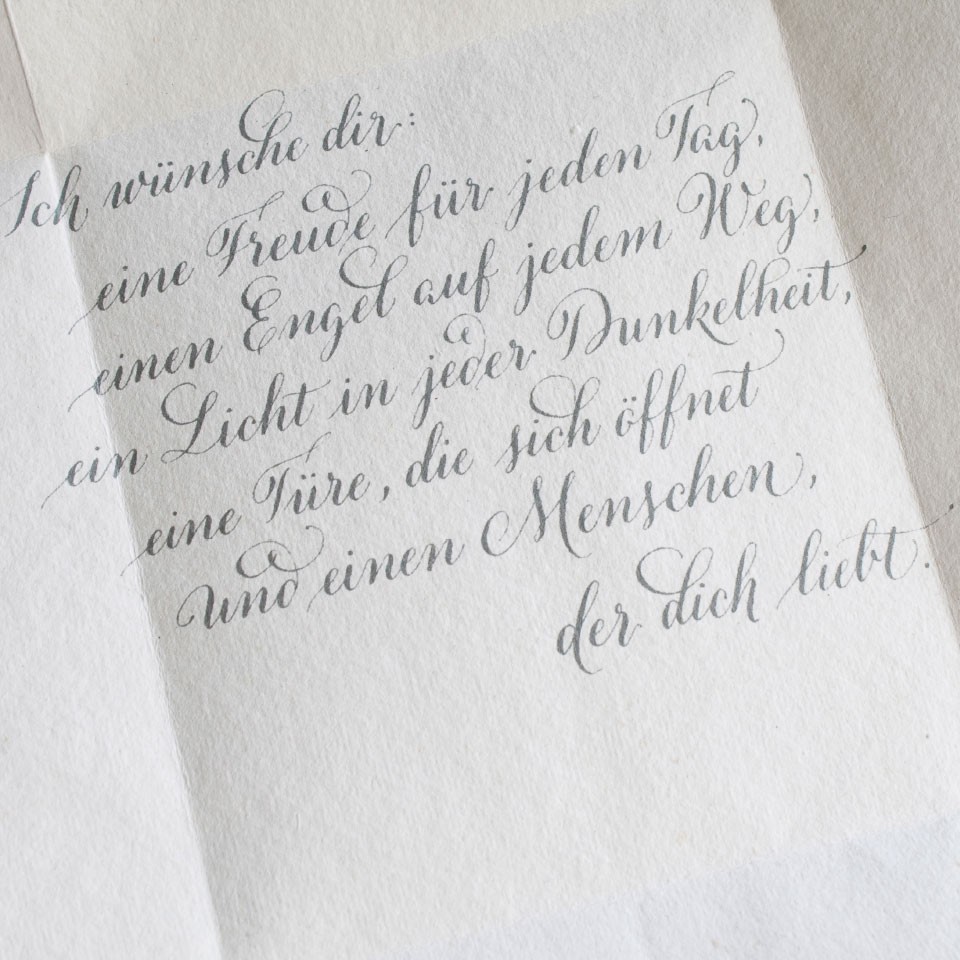 Ich wünsche dir:
eine Freude für jeden Tag,
einen Engel auf jedem Weg,
ein Licht in jeder Dunkelheit,
eine Türe, die sich öffnet
und einen Menschen,
der dich liebt.